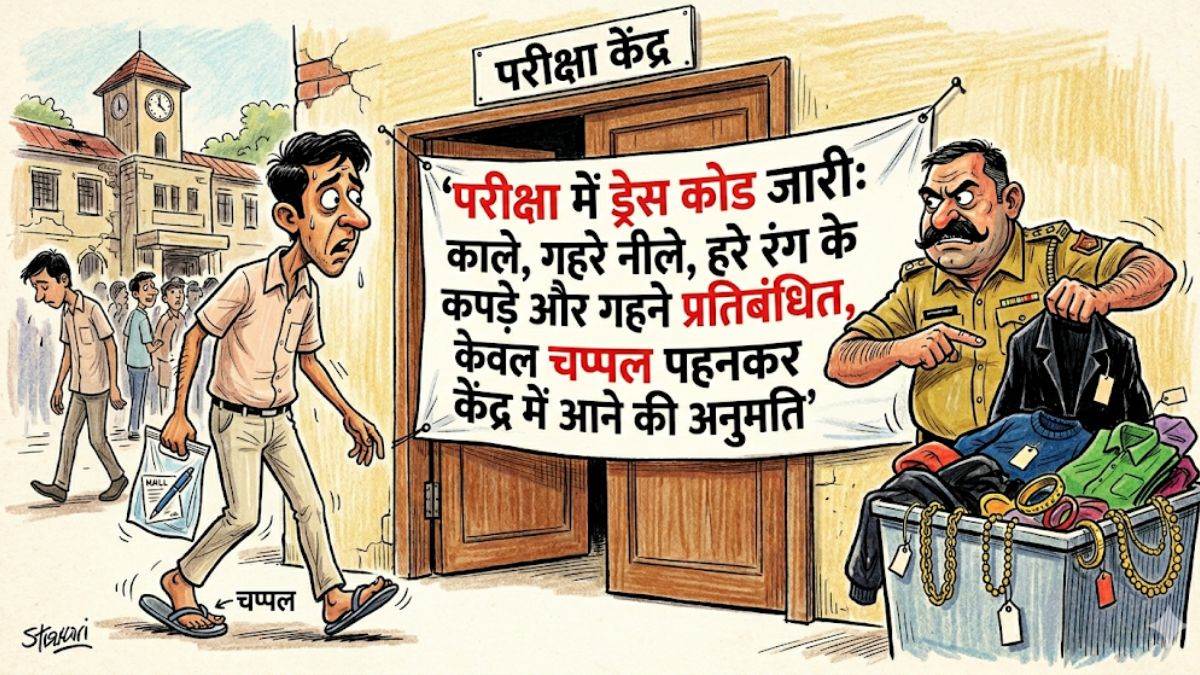 परीक्षा केंद्र
'परीक्षा में ड्रेस कोड जारीः
काले, गहरे नीले, हरे रंग के
कपड़े और गहने प्रतिबंधित,
केवल चप्पल पहनकर
केंद्र में आने की अनुमति'
चप्पल